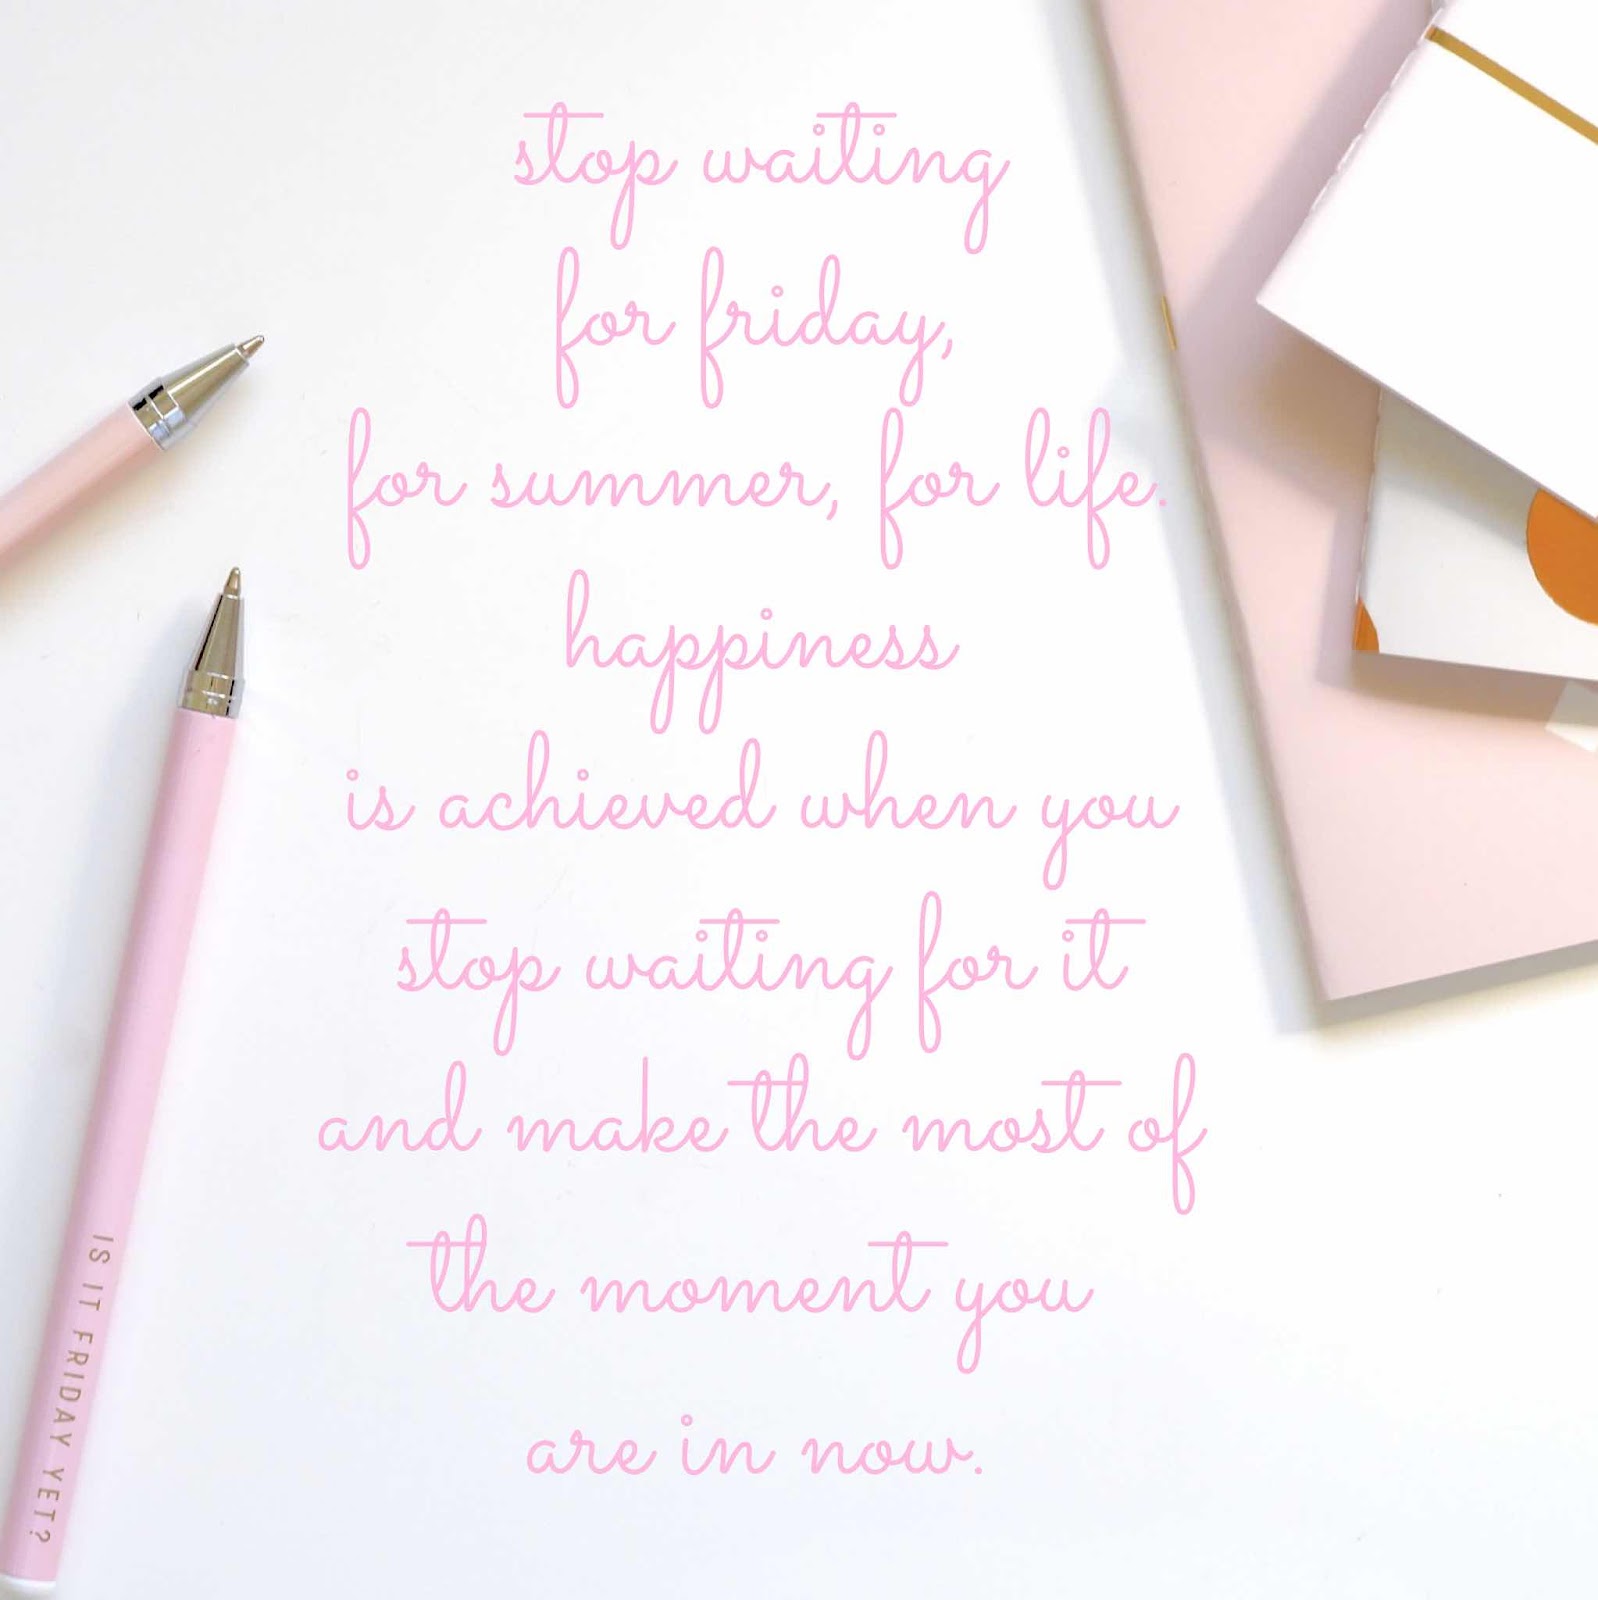 stop waiting
for friday,
for summer, for life.
happiness
is achieved when you
stop waiting for it
and make the most of
the moment you
are in now.
IS IT FRIDAY YET?